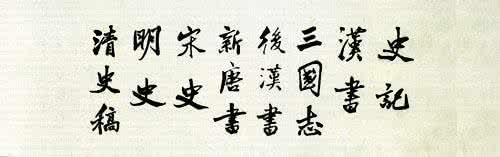 史記
漢書
三國志
後漢書
新唐書
宋史
明史
清史稿